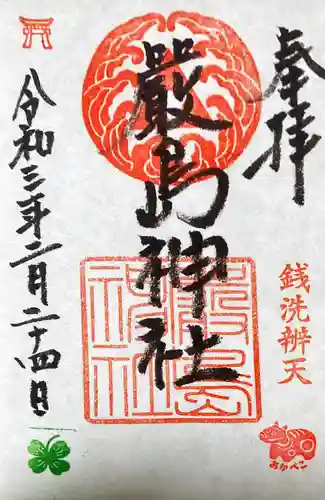 奉拝
銭洗辨天
厳島神社
嚴島神社
令和三年二月二十四日
あかべこ